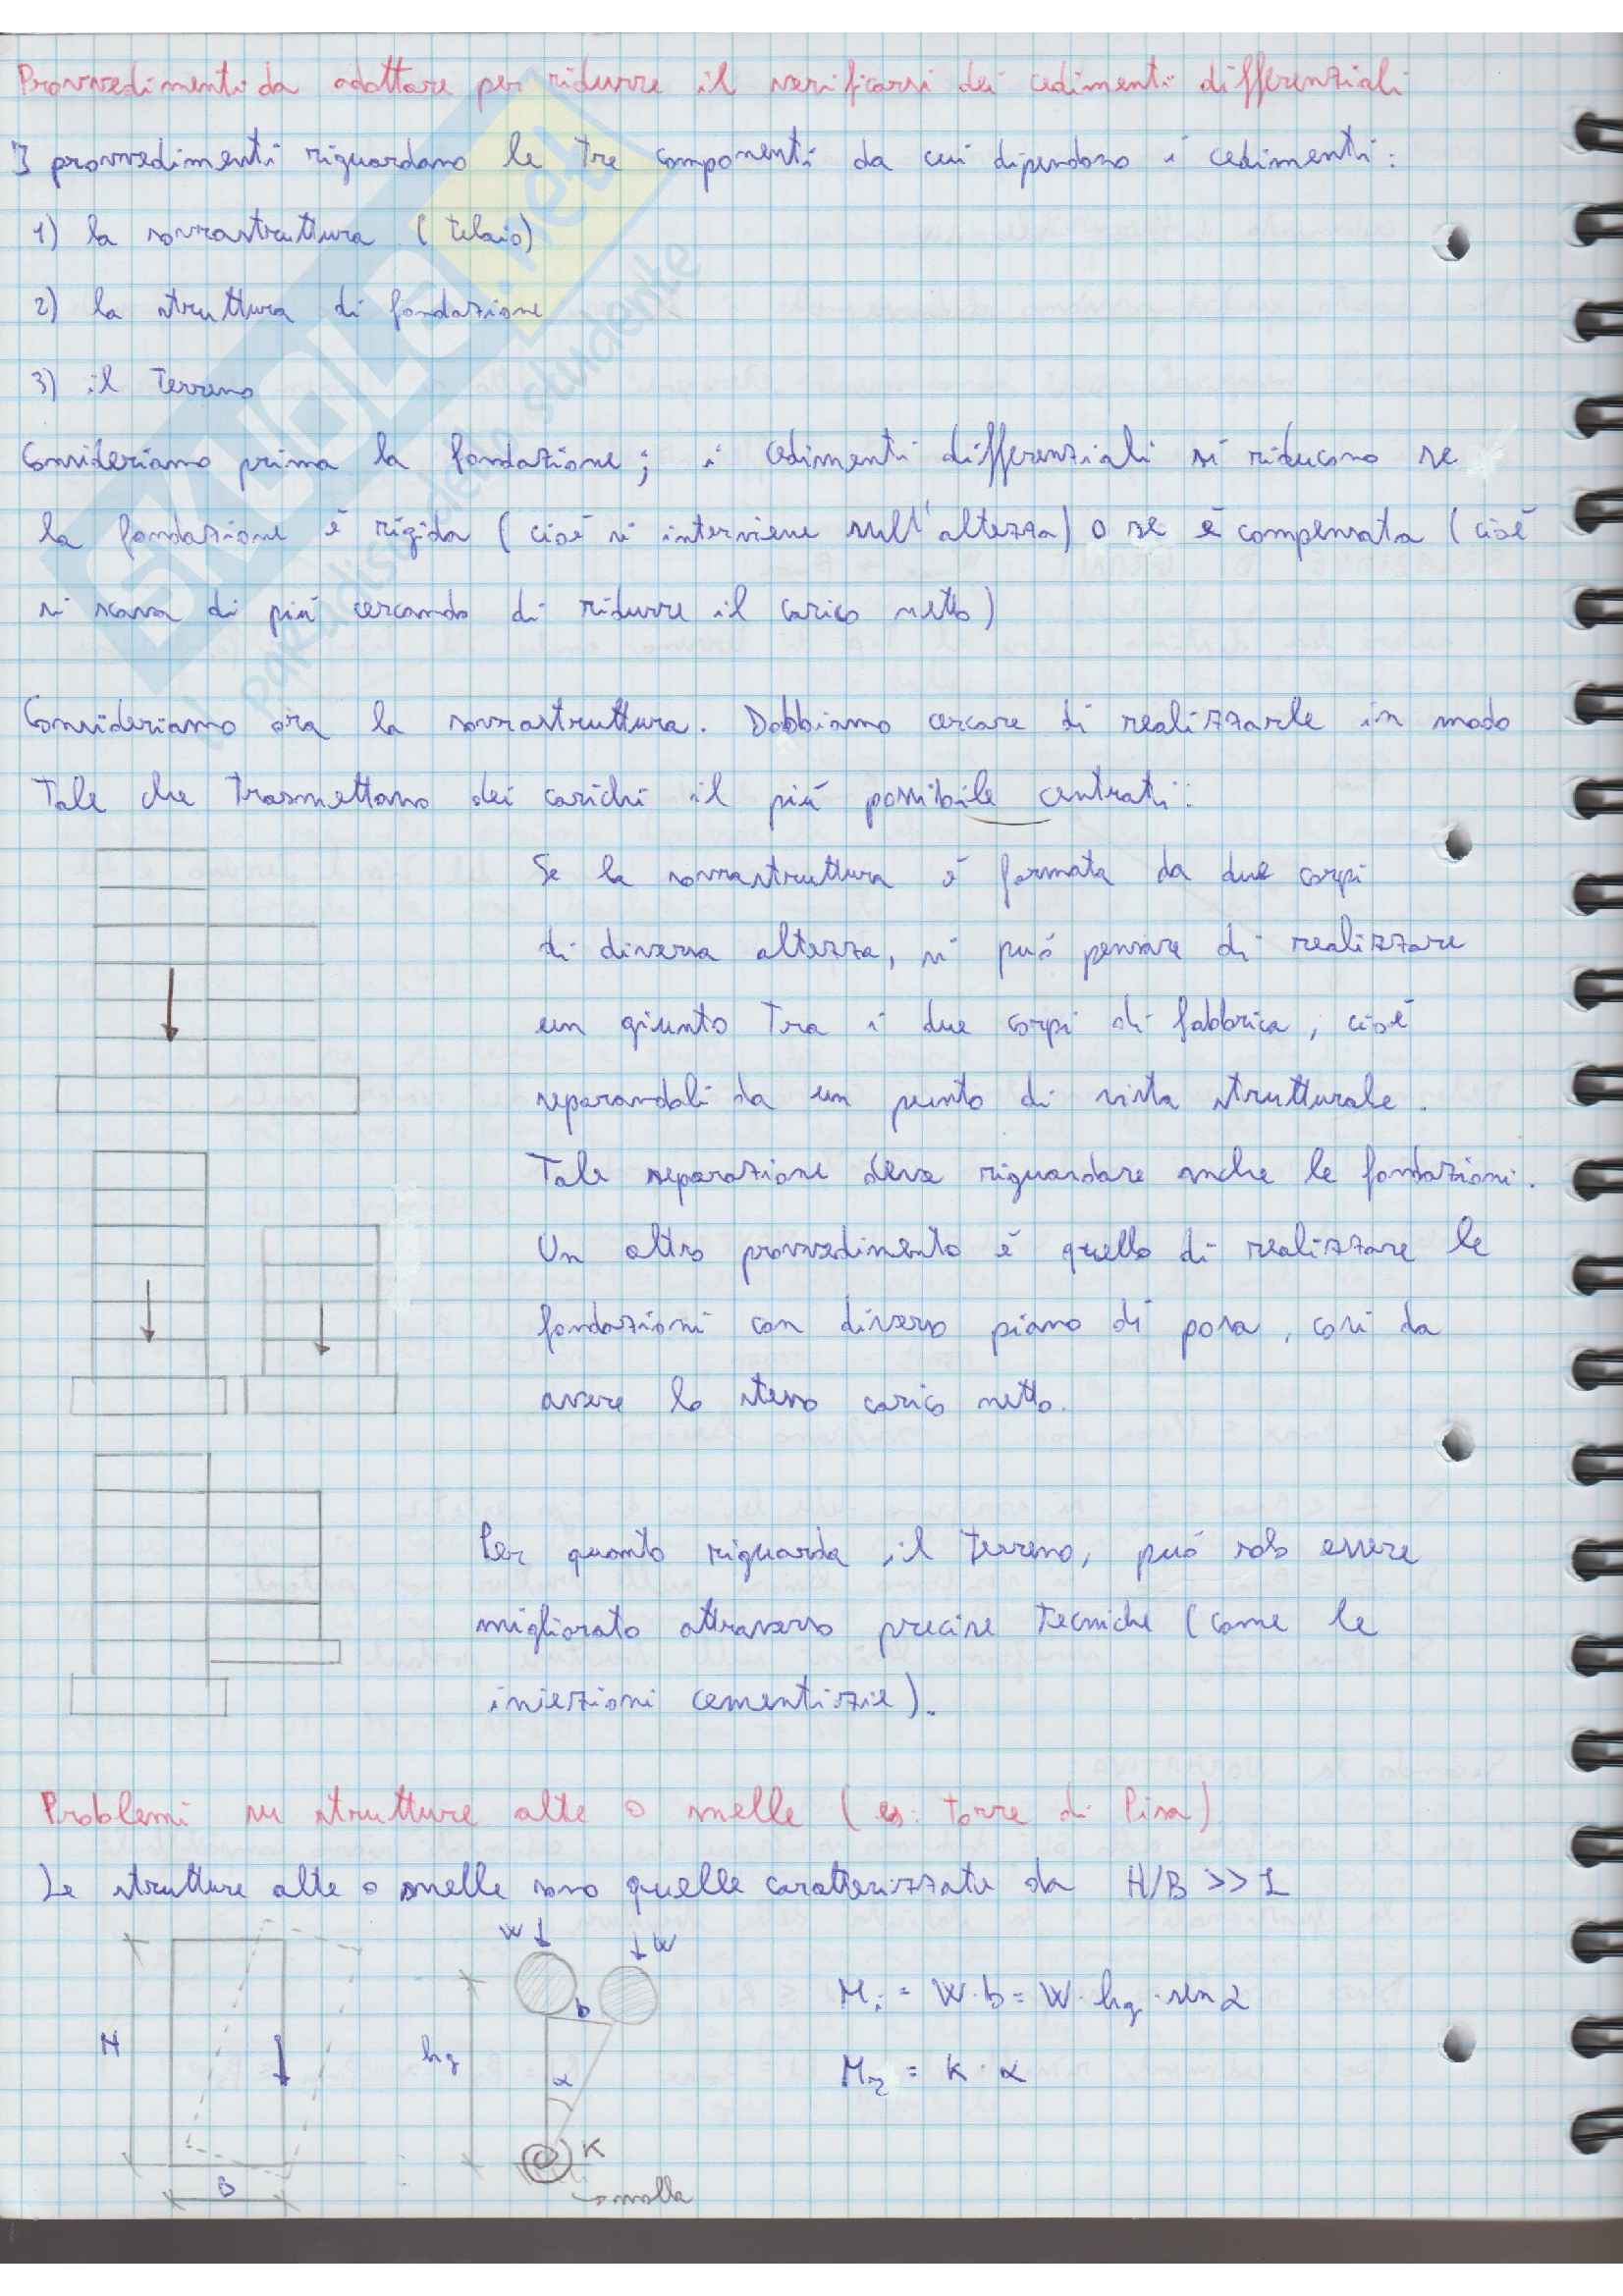 Provvedimenti da adottare per ridurre il verificarsi dei cedimenti differenziali
I provvedimenti riguardano le tre componenti da cui dipendono i cedimenti:
1) la sovrastruttura (telaio)
2) la struttura di fondazione
3) il terreno
Consideriamo prima la fondazione; i cedimenti differenziali si riducono se
la fondazione è rigida (cioè si interviene sull'altezza) o se è compensata (cioè
si scava di più cercando di ridurre il carico netto)
Consideriamo ora la sovrastruttura. Dobbiamo cercare di realizzarle in modo
tale che trasmettano dei carichi il più possibile centrati:
Se la sovrastruttura è formata da due corpi
di diversa altezza, si può pensare di realizzare
un giunto tra i due corpi di fabbrica, cioè
separandoli da un punto di vista strutturale.
Tale separazione deve riguardare anche le fondazioni.
Un altro provvedimento è quello di realizzare le
fondazioni con diverso piano di posa, così da
avere lo stesso carico netto.
Per quanto riguarda il terreno, può solo essere
migliorato attraverso precise tecniche (come le
iniezioni cementizie).
Problemi su strutture alte o snelle (es: torre di Pisa)
Le strutture alte o snelle sono quelle caratterizzate da H/B >> 1
W W
H hg b α K B
molla
Mi = W·b = W·hg·sen α
Mr = K·α
SKUOLA.net
il paradiso dello studente